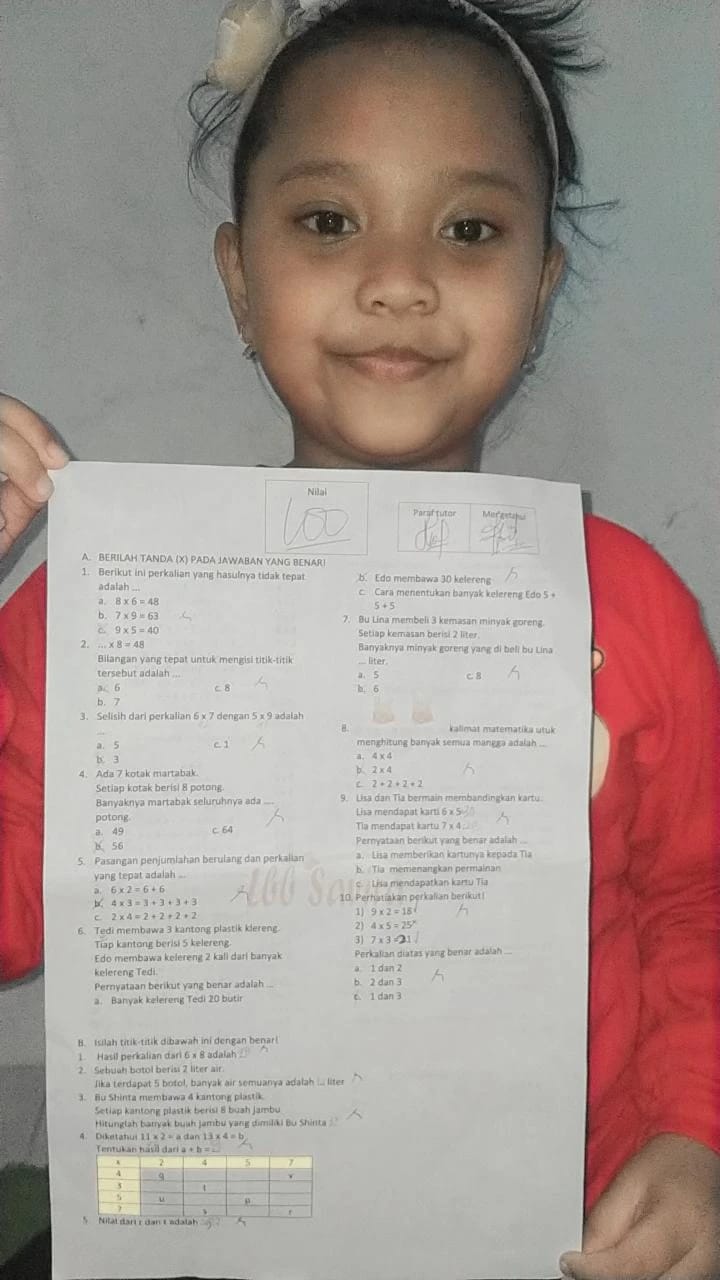 Nilai
100
Paraf tutor
Mengetahui
A. BERILAH TANDA (X) PADA JAWABAN YANG BENAR!
1. Berikut ini perkalian yang hasulnya tidak tepat
adalah ...
a. 8 x 6 = 48
b. 7 x 9 = 63
c. 9 x 5 = 40
2. ... x 8 = 48
Bilangan yang tepat untuk mengisi titik-titik
tersebut adalah ...
a. 6 c. 8
b. 7
3. Selisih dari perkalian 6 x 7 dengan 5 x 9 adalah
...
a. 5 c. 1
b. 3
4. Ada 7 kotak martabak.
Setiap kotak berisi 8 potong.
Banyaknya martabak seluruhnya ada ....
potong.
a. 49 c. 64
b. 56
5. Pasangan penjumlahan berulang dan perkalian
yang tepat adalah ...
a. 6 x 2 = 6 + 6
b. 4 x 3 = 3 + 3 + 3 + 3
c. 2 x 4 = 2 + 2 + 2 + 2
6. Tedi membawa 3 kantong plastik klereng.
Tiap kantong berisi 5 kelereng.
Edo membawa kelereng 2 kali dari banyak
kelereng Tedi.
Pernyataan berikut yang benar adalah ...
a. Banyak kelereng Tedi 20 butir
b. Edo membawa 30 kelereng
c. Cara menentukan banyak kelereng Edo 5 +
5 + 5
7. Bu Lina membeli 3 kemasan minyak goreng.
Setiap kemasan berisi 2 liter.
Banyaknya minyak goreng yang di beli bu Lina
... liter.
a. 5 c. 8
b. 6
8. kalimat matematika utuk
menghitung banyak semua mangga adalah ...
a. 4 x 4
b. 2 x 4
c. 2 + 2 + 2 + 2
9. Lisa dan Tia bermain membandingkan kartu.
Lisa mendapat karti 6 x 5
Tia mendapat kartu 7 x 4
Pernyataan berikut yang benar adalah ...
a. Lisa memberikan kartunya kepada Tia
b. Tia memenangkan permainan
c. Lisa mendapatkan kartu Tia
10. Perhatiakan perkalian berikut!
1) 9 x 2 = 18
2) 4 x 5 = 25
3) 7 x 3 = 21
Perkalian diatas yang benar adalah ...
a. 1 dan 2
b. 2 dan 3
c. 1 dan 3
B. Isilah titik-titik dibawah ini dengan benar!
1. Hasil perkalian dari 6 x 8 adalah
2. Sebuah botol berisi 2 liter air.
Jika terdapat 5 botol, banyak air semuanya adalah ... liter
3. Bu Shinta membawa 4 kantong plastik.
Setiap kantong plastik berisi 8 buah jambu
Hitunglah banyak buah jambu yang dimiliki Bu Shinta
4. Diketahui 11 x 2 = a dan 13 x 4 = b
Tentukan hasil dari a + b =
x 2 4 5 7
4 q v
3 t
5 u p
7 s r
5. Nilai dari r dan t adalah